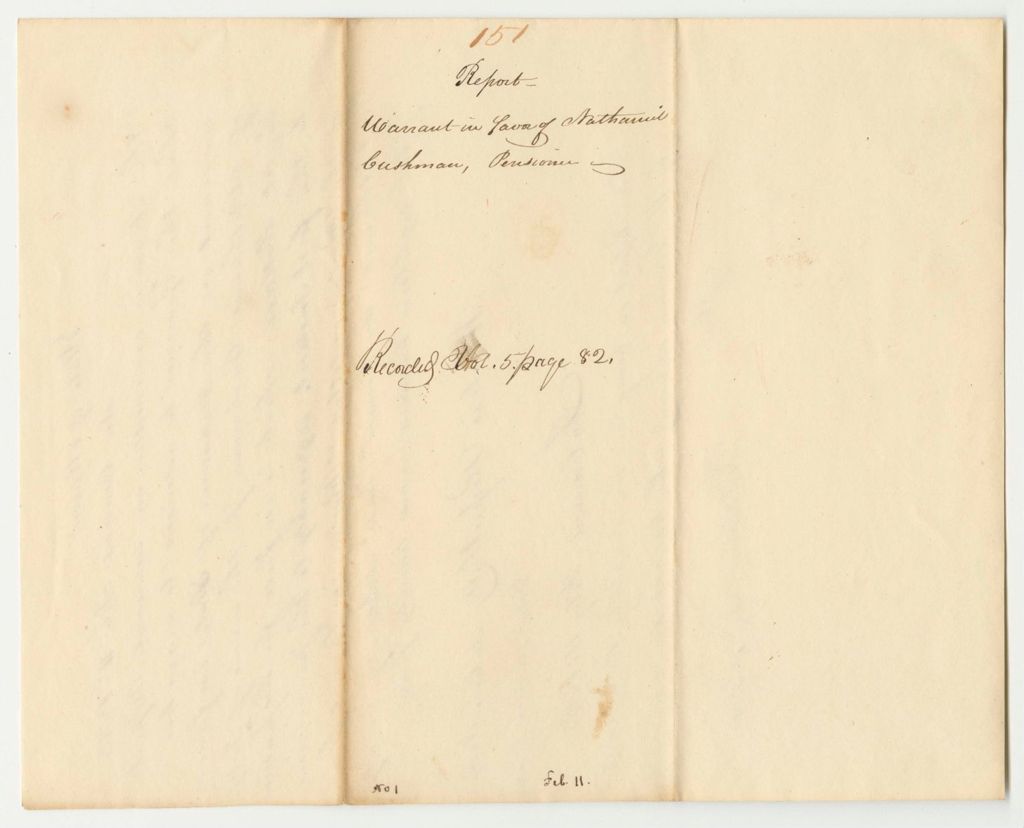 151
Report-
Warrant in favor of Nathaniel
Cushman, Pensioner
Recorded Vol. 5. page 82.
No 1
Feb. 11.